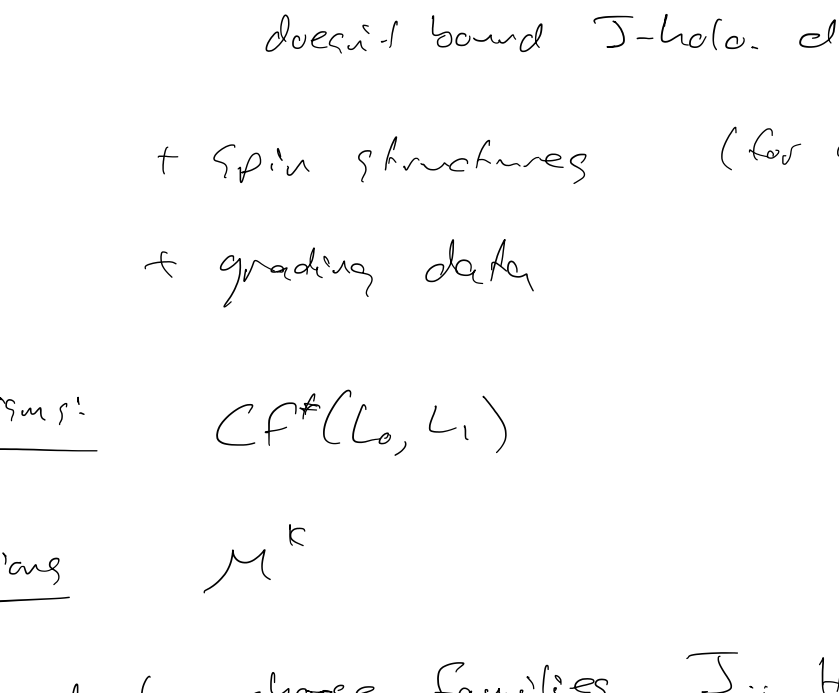 doesn't bound J-holo.
+ spin structures (for
+ grading data
CF*(L₀, L₁)
μᵏ
choose families J